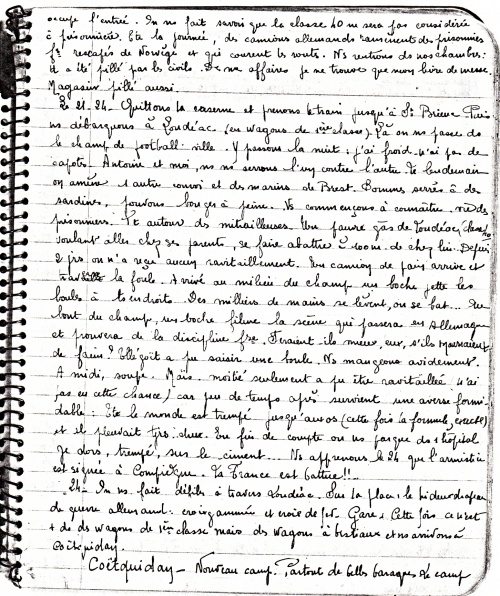 occupe l'entrée. On ns fait savoir que la classe 40 ne sera pas considérée
à prisonnière. Tte la journée, des camions allemands ramènent des prisonniers
frs rescapés de Norvège et qui courent les routes. Ns rentrons ds nos chambres :
tt a été pillé par les civils. De mes affaires je ne trouve que mon livre de messe
Magasin pillé aussi.
Le 21-24. Quittons la caserne et prenons le train jusqu'à St Brieuc Puis
ns débarquons à Loudéac (en wagons de 1ère classe). Là on ns passe ds
le champ de football ville. Y passons la nuit ; j'ai froid n'ai pas de
capote. Antoine et moi, ns ns serrons l'un contre l'autre. Le lendemain
on amène 1 autre convoi et des marins de Brest. Sommes serrés à des
sardines, pouvons bouger à peine. Ns commençons à connaître vie des
prisonniers. Tt autour des mitrailleuses. Un pauvre gâs de Loudéac, classe 40
voulant aller chez ses parents, se faire abattre à 100m. de chez lui. Depuis
2 jrs on n'a reçu aucun ravitaillement. Un camion de pain arrive et
la foule. Arrivé au milieu du champ un boche jette les
boules à tt endroits. Des milliers de mains se lèvent, on se bat... Au
bout du champ, un boche filme la scène qui passera en Allemagne
et prouvera de la discipline frse. Feraient-ils mieux, eux, s'ils mouraient
de faim ? Ellégoët a pu saisir une boule. Ns mangeons avidement.
A midi, soupe. Mais moitié seulement a pu être ravitaillée (n'ai
pas eu cette chance) car peu de temps après survient une averse formi-
dable : Tte le monde est trempé jusqu'aux os (cette fois la formule, exacte)
et il pleuvait très dur. En fin de compte on ns parque ds 1 hôpital
Je dors, trempé, sur le ciment... Ns apprenons le 24 que l'armistice
est signée à Compiègne. La France est battue!!
24- On ns fait défiler à travers Loudéac. Sur la place, le hideux drapeau
de guerre allemand : croix gammée et croix de fer. Gare. Cette fois ce n'est
+ ds des wagons de 1ère classe mais ds wagons à bestiaux et ns arrivons à
Coëtquidan.
Coëtquidan - Nouveau camp. Partout de belles baraques. Le camp